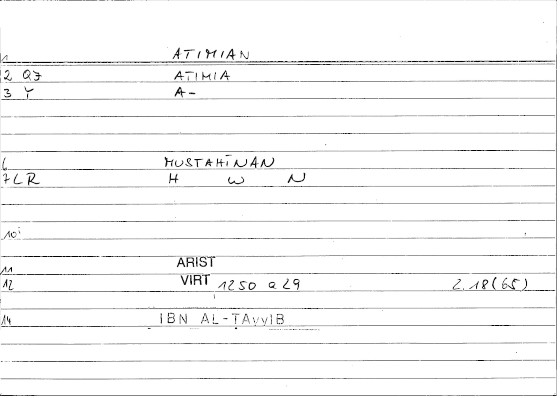 1 ATIMIAN
2 QJ ATIMIA
3 Y A-
6 MUSTAHĪNAN
7 LR H W N
10
11 ARIST
12 VIRT 1250 a 29 2.18(65)
14 IBN AL-ṬAyyIB